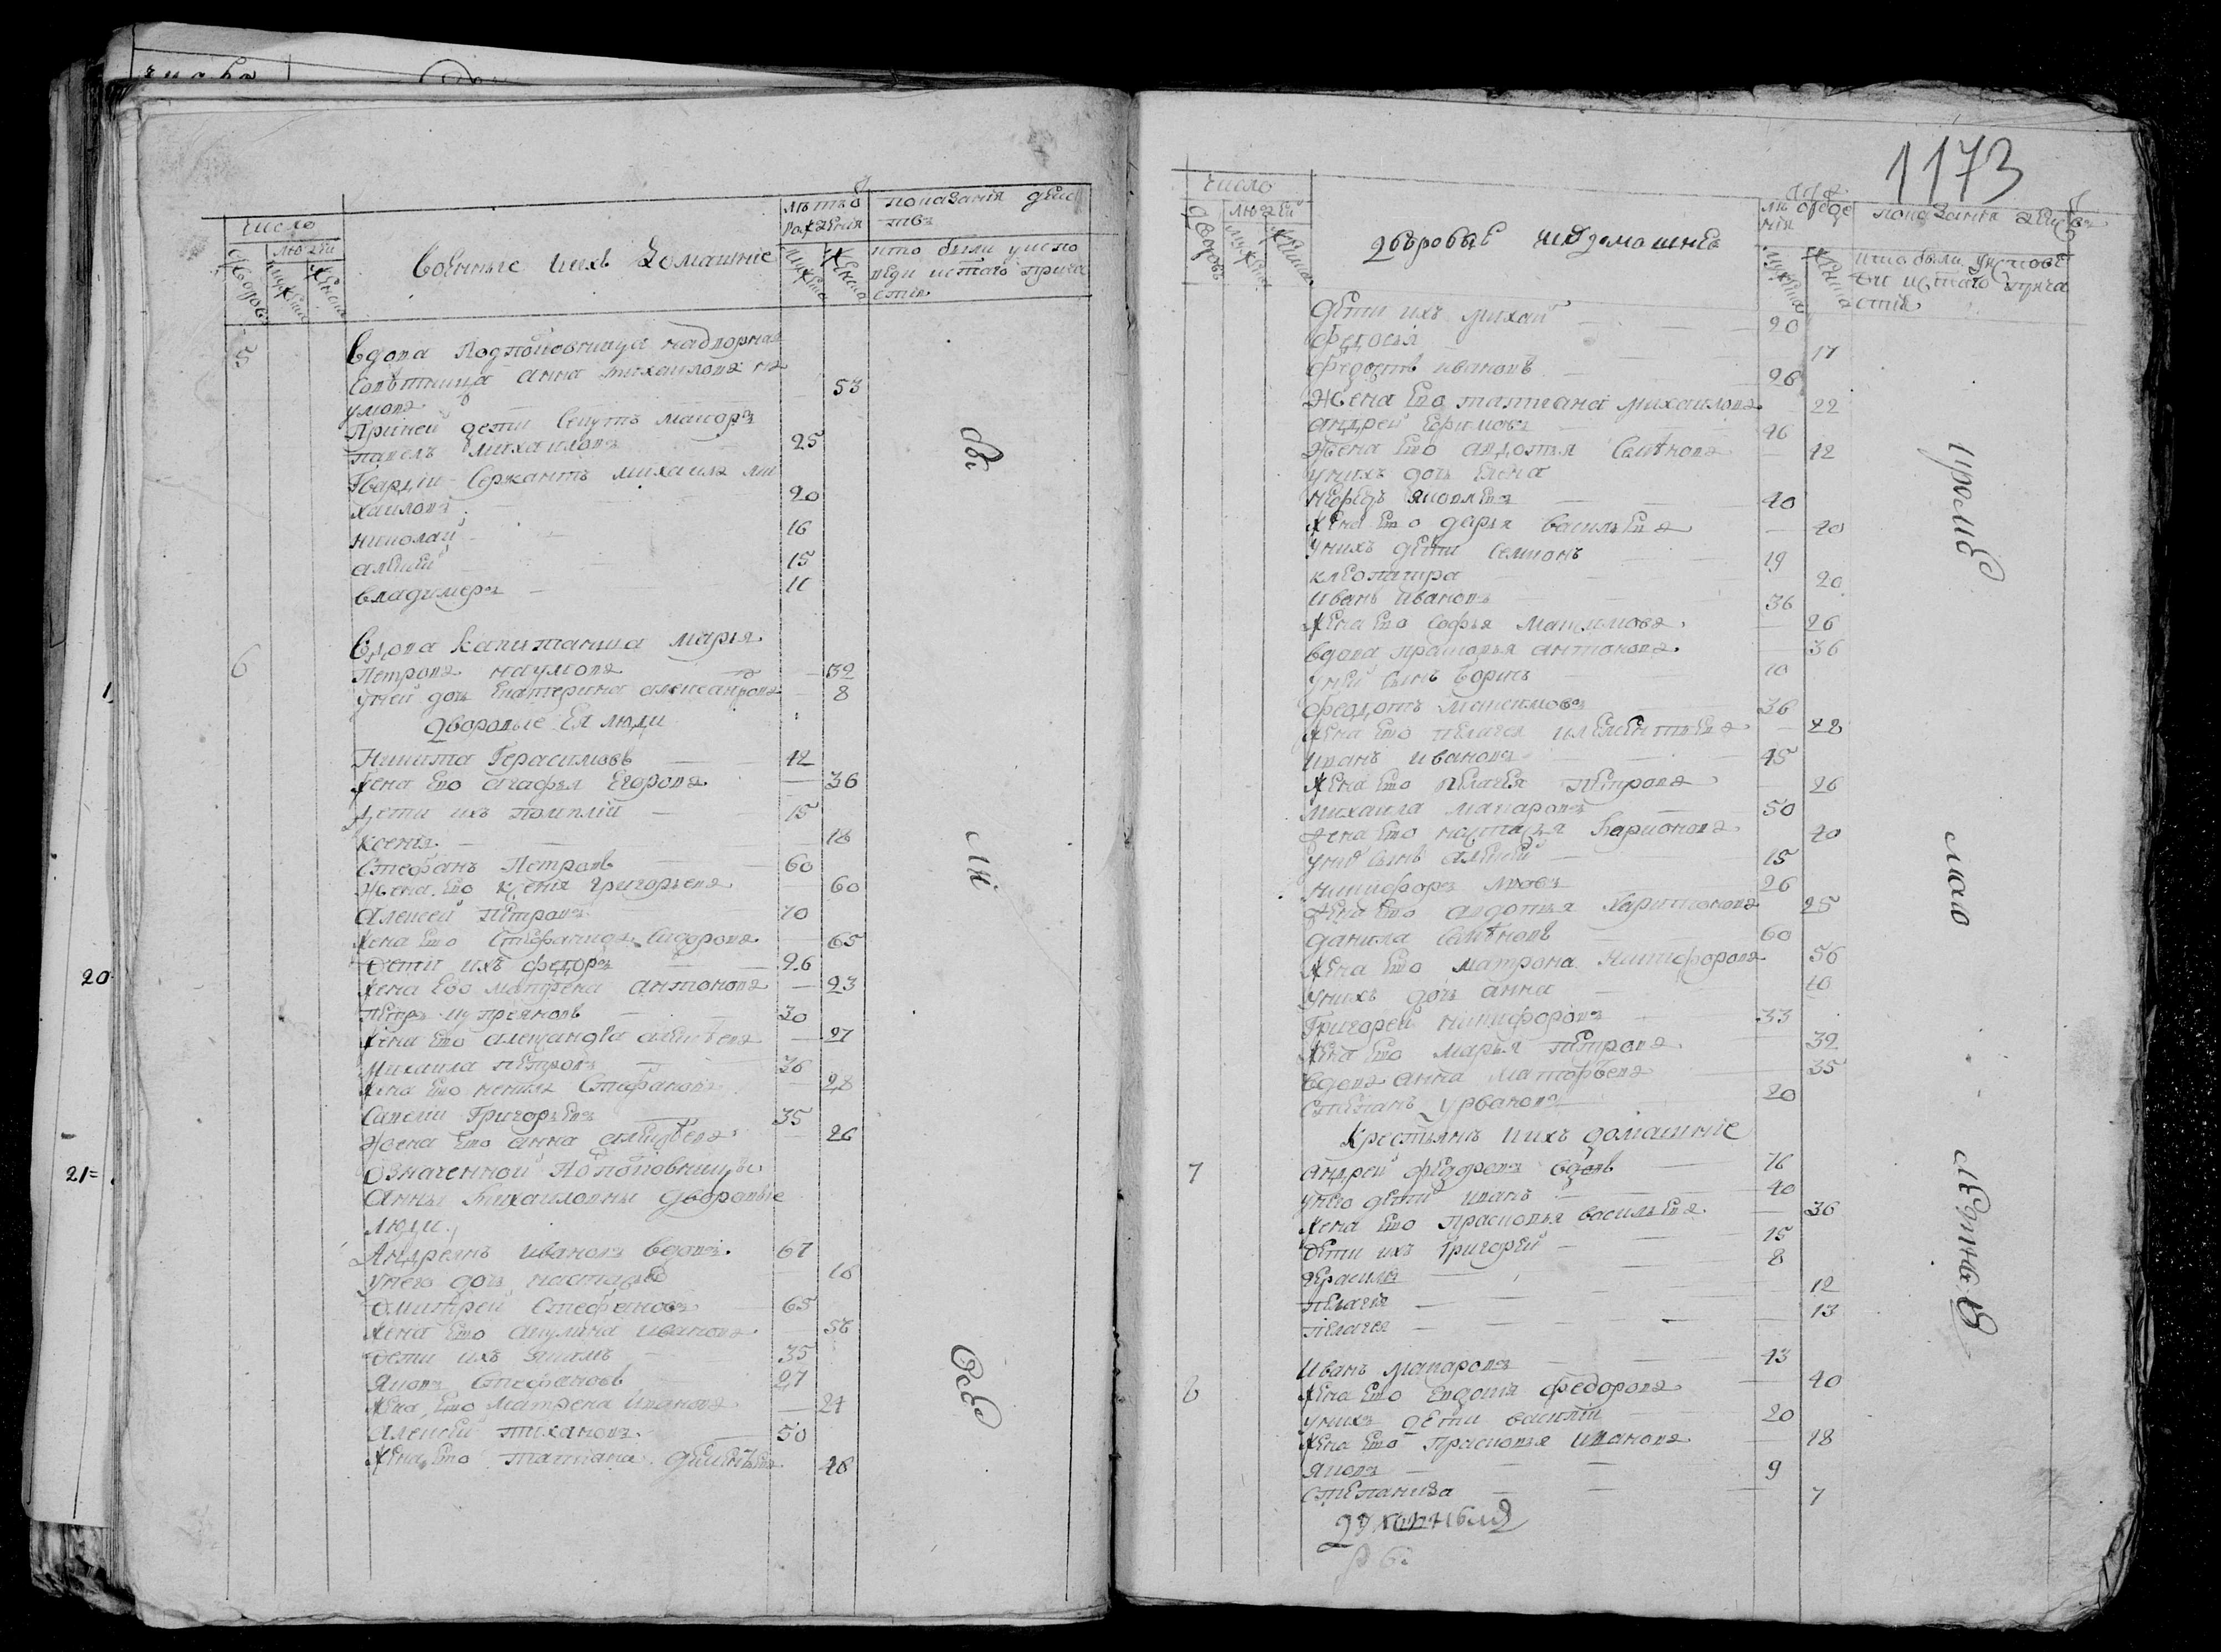 число
дворовъ
людей
мужеска
женска
военные и ихъ домашние
лѣтъ о рожденiя
мужеска
женска
показанiя действъ
кто были у испо
веди и с̃таго прича
стiя
5
Вдова Подполковница надворная
Советница Анна Михаилова На
умова 53
При ней дети Секунтъ маиоръ
Павелъ Михаиловъ 25
Гвардiи Сержантъ Михаила Ми
хаиловъ 20
Николай 16
Алексей 15
Владимеръ 11
6
Вдова Капитанша Марья
Петрова Наумова 32
У ней дочь Екатерина Александрова 8
Дворовые Ея люди
Никита Герасимовъ 42
Жена Ево Агафья Егорова 36
Дети ихъ Помплiй 15
Ксенья 18
Стефанъ Петровъ 60
Жена Ево Ксенiя Григорьева 60
Алексей Петровъ 70
Жена Ево Стефанида Сидорова 65
Дети ихъ Федоръ 26
Жена Ево Матрена Антонова 23
Петръ Купреяновъ 30
Жена Ево Александра Алексѣева 27
Михаила Петровъ 36
Жена Ево Стефанова 28
Савелiй Григорьевъ 35
Жена Ево Анна Алексѣева 26
Означенной Подполковницы
Анны Михаиловны дворовые
люди
Андреянъ Ивановъ вдовъ 67
У него дочь Настасья 16
Дмитрей Стефановъ 65
Жена Ево Акулина Иванова 56
Дети ихъ 35
Яковъ Стефановъ 27
Жена Ево Матрена Иванова 24
Алексей Тихановъ 50
Жена Ево Татиана 46
свя
ми
Осо
1
20
21=
1173
число
дворовъ
людей
мужеска
женска
дворовые и их домашнiе
мужеска
женска
показанiя действъ
кто были у испове
ди и с̃таго прича
стiя
Дети ихъ Михай 20
Федосья 17
Федотъ Ивановъ 26
Жена Ево Татиана Михаилова 22
Андрей Ефимовъ 46
Жена Ево Авдотья Семѣнова 42
У нихъ дочь Елена
Нефедъ Яковлевъ 40
Жена Ево Дарья Васильева 40
У нихъ дети Семионъ 19
Клеопатра 20
Иванъ Ивановъ 36
Жена Ево Софья Максимова 26
Вдова Прасковья Антонова 36
У ней сынъ Борисъ 10
Федотъ Максимовъ 36
Жена Ево Пелагея Клементьева 28
Иванъ Ивановъ 45
Жена Ево Пелагея Петрова 26
Михаила Макаровъ 50
Жена Ево Настасья Ларионова 40
У них сынъ Алексей 15
Никифоръ Львовъ 26
Жена Ево Авдотья Харитонова 25
Данила Семѣновъ 60
Жена Ево Матрона Никифорова 56
У нихъ дочь Анна 10
Григорей Никифоровъ 33
Жена Ево Марья Петрова 32
Вдова Анна Матфѣева 35
Степанъ Урвановъ 20
Крестьянъ и ихъ домашние
7
Андрей Федоровъ вдовъ 76
У него дети Иванъ 40
Жена Ево Прасковья Васильева 36
Дети ихъ Григорей 15
Герасимъ 8
Пелагiя 12
Пелагея 13
8
Иванъ Макаровъ 43
Жена Ево Евдокiя Федорова 40
У нихъ дети Василiй 20
Жена Ево Прасковья Иванова 18
Яковъ 9
Степанида 7
кроме
мало
летныхъ